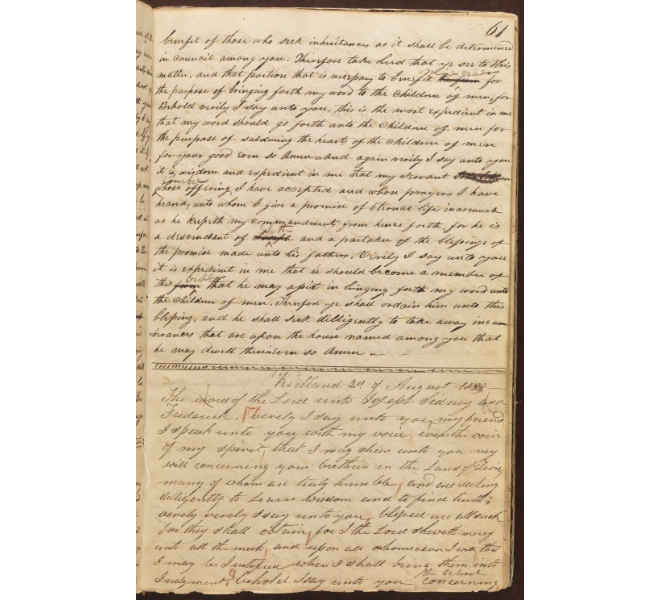 61
benefit of those who seek inheritances as it shall be determined
in council among you. Therefore take heed that ye see to this
matter, and that portion that is necessary to benefit for
the purpose of bringing forth my word to the children of men, for
Behold verily I say unto you, this is the most expedient in me
that my word should go forth unto the children of men for
the purpose of subduing the hearts of the children of men
for your good even so Amen And again verily I say unto you
it is wisdom and expedient in me that my servant
whose offering I have accepted and whose prayers I have
heard, unto whom I give a promise of Eternal life inasmuch
as he keepeth my commandments from hence forth for he is
a descendant of and a partaker of the blessings of
the promise made unto his fathers. Verily I say unto you
it is expedient in me that he should become a member of
the firm that he may assist in bringing forth my word unto
the children of men. Therefore ye shall ordain him unto this
blessing, and he shall seek dilligently to take away incum
brances that are upon the house named among you that
he may dwell therein even so Amen
Kirtland 2d of August 1833
The word of the Lord unto Joseph Sidney and
Frederick. Verily I say unto you my friend
I speak unto you with my voice, even the voice
of my spirit, that I may shew unto you my
will concerning your brethren in the Land of Zion
many of whom are truly humble, and are seeking
dilligently to learn wisdom and to find truth,
verily verily I say unto you, blessed are all such
for they shall obtain, for I the Lord sheweth mercy
unto all the meek, and upon all whomsoever I will, that
I may be Justified when I shall bring them into
the School
Judgment. Behold I say unto you concerning